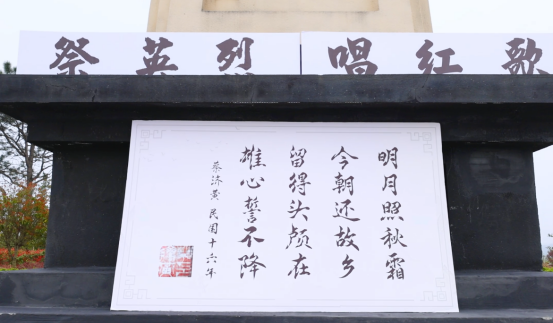 祭英烈 唱红歌
明月照秋霜
今朝还故乡
留得头颅在
雄心誓不降
蔡济黄 民国十六年